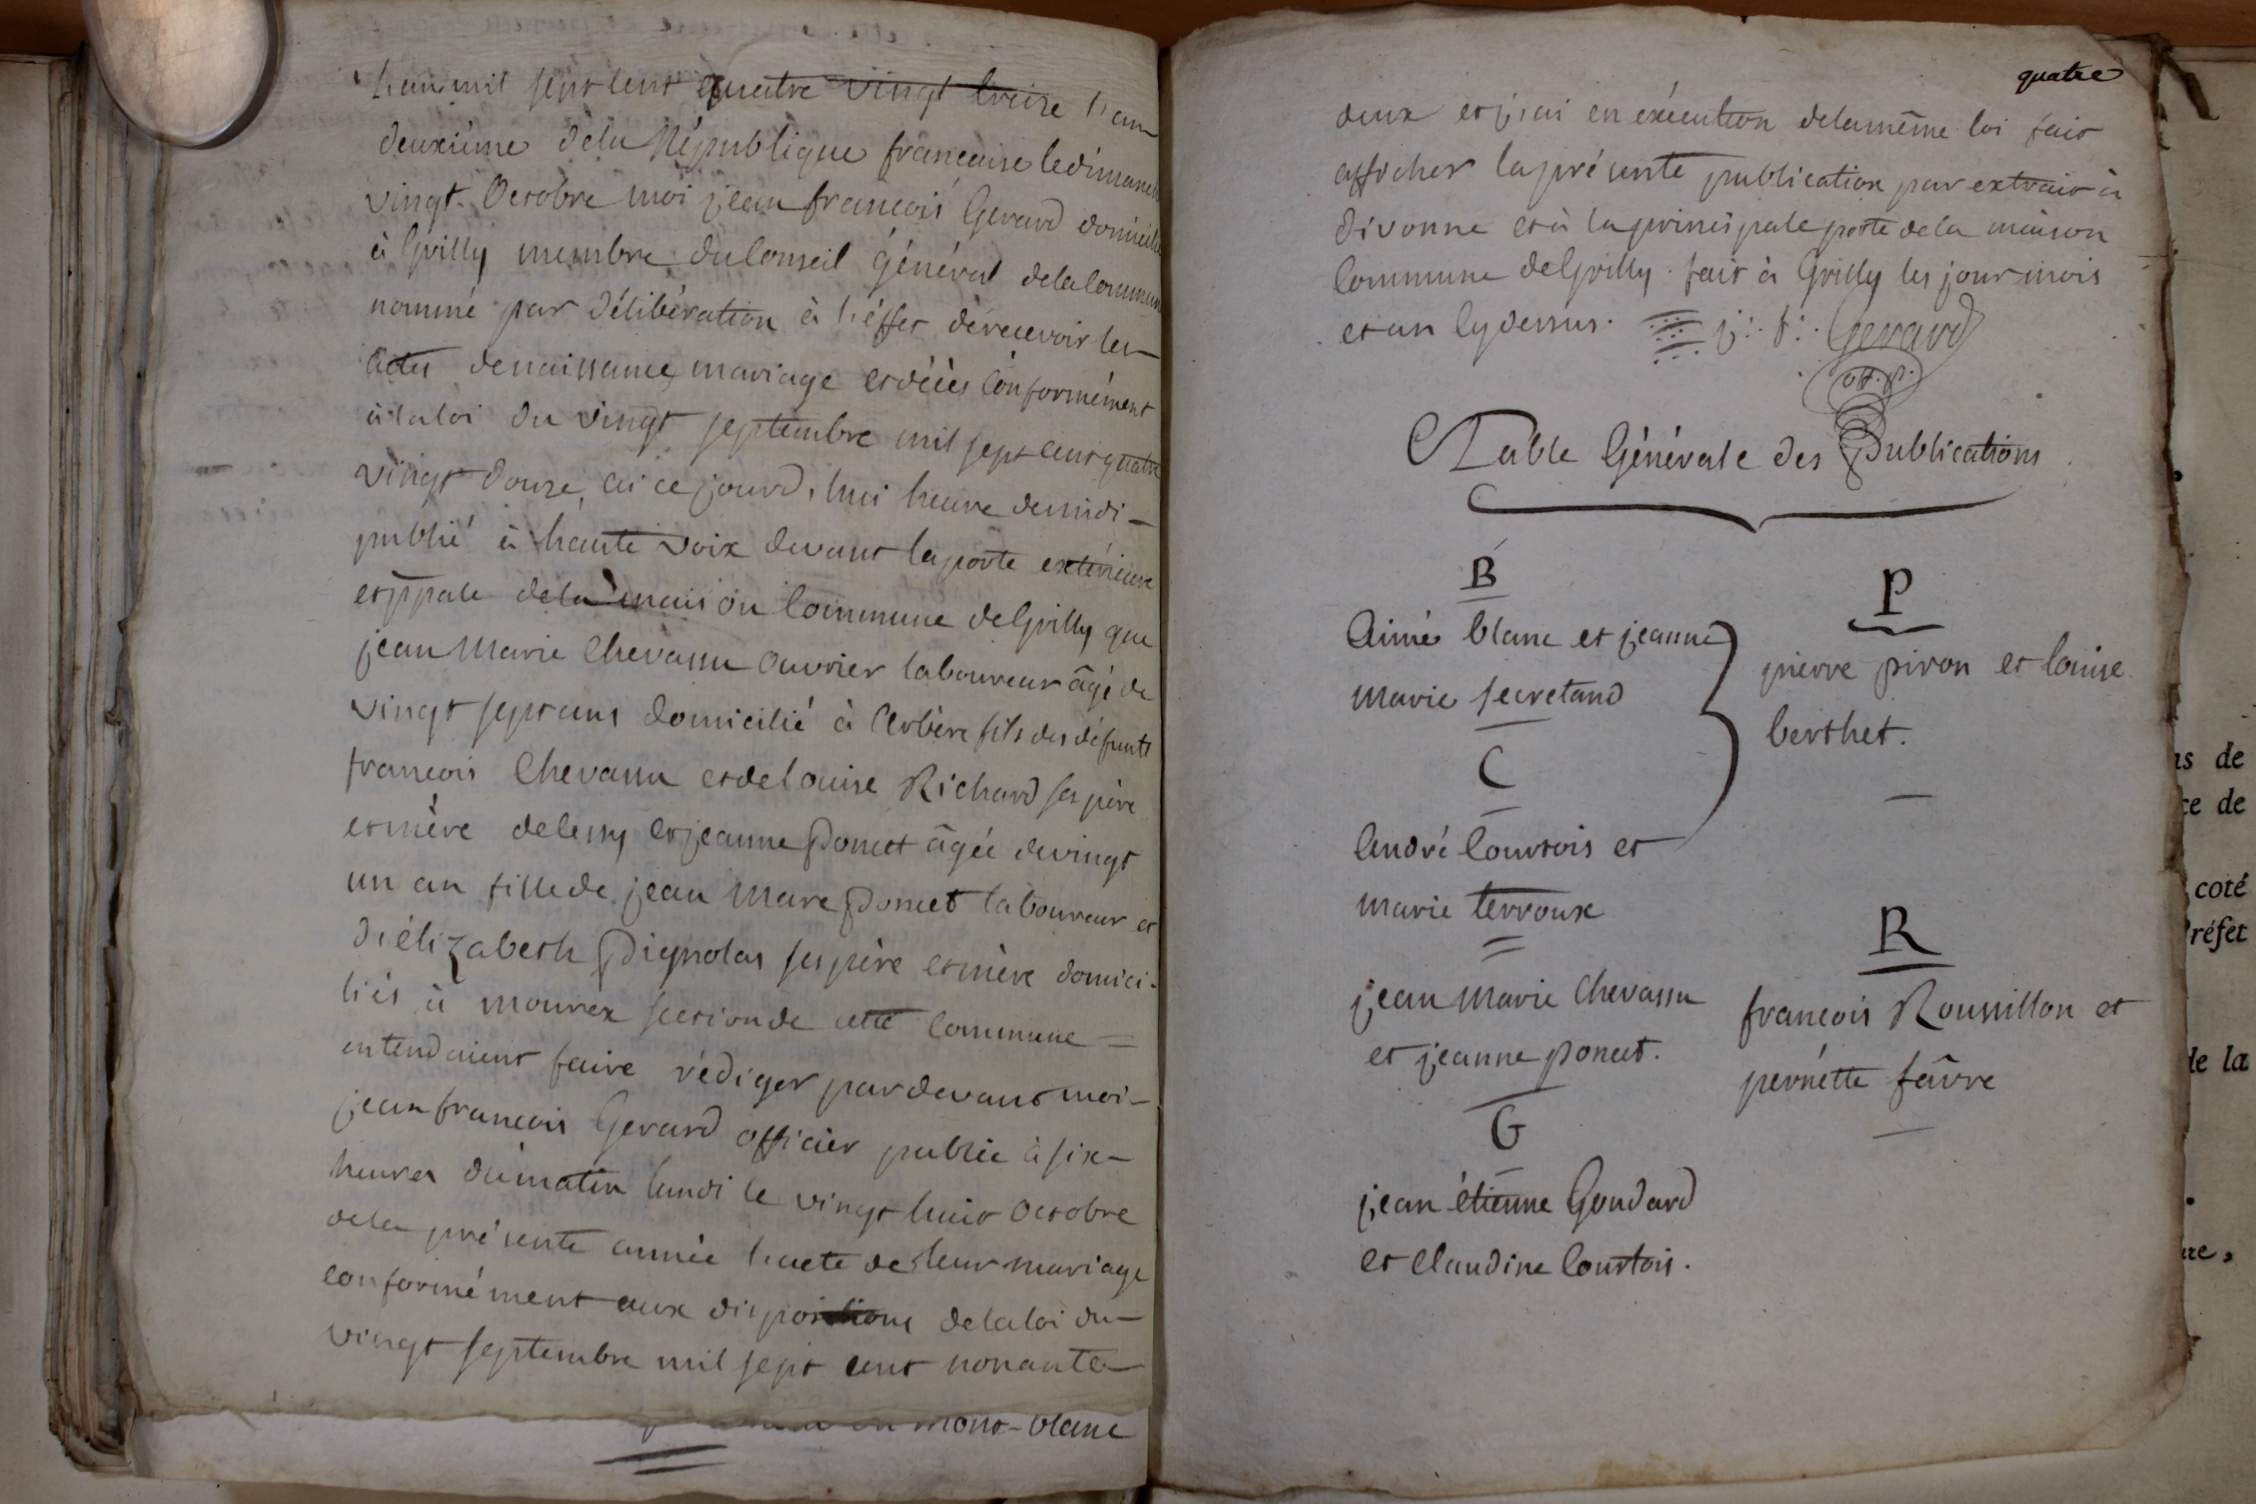 L'an mil sept cent quatre vingt treize l'an
deuxième dela République francaise le dimanche
vingt Octobre moi jean francois Gerard domicilié
à Grilly membre du Conseil général dela Commune
nommé par délibération à l'éffet dè recevoir les
actes de naissance, mariage et décès Conformément
à la loi du vingt septembre mil sept cent quatre
vingt douze, ai ce jourd'hui heure de midi
publié à haute voix devant la porte extérieure
et ppale dela maison Commune de Grilly que
jean Marie Chevassu ouvrier laboureur âgé de
vingt sept ans domicilié à Arbère fils des défunts
francois Chevassu et de louise Richard ses père
et mère de lessy et jeanne Poncet âgée de vingt
un an fille de jean Marc Poncet laboureur et
d'élizabeth Pignolas ses père et mère domici-
liés à mourex section de cette Commune =
entendaient faire rédiger par devant moi
jean francois Gerard officier public à six
heures du matin lundi le vingt huit Octobre
dela présente année l'acte de leur mariage
conformément aux dispositions dela loi du
vingt septembre mil sept cent nonante
mont-blanc
quatre
deux et j'ai en exécution dela même loi fait
afficher la présente publication par extrait à
divonne et à la principale porte dela maison
Commune de Grilly. fait à Grilly les jour mois
et an Cy dessus. j: f: Gerard
off. p.
Table Générale des Publications
B
Aimé blanc et jeanne
marie secretand
C
André Courtois et
marie terroux
jean marie Chevassu
et jeanne poncet.
G
jean étienne Goudard
et Claudine Courtois.
P
pierre piron et louise
berthet.
R
francois Roussillon et
pernette fâvre
ns de
ce de
coté
Préfet
de la